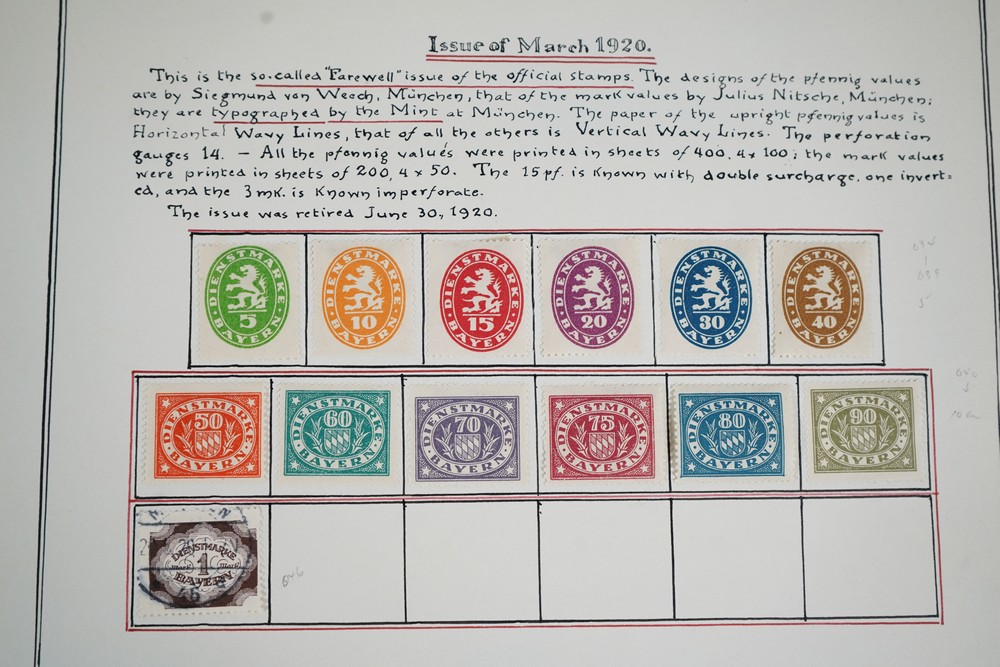 Issue of March 1920.
This is the so-called "Farewell" issue of the official stamps. The designs of the pfennig values
are by Siegmund von Weech, München, that of the mark values by Julius Nitsche, München;
they are typographed by the Mint at München. The paper of the upright pfennig values is
Horizontal Wavy Lines, that of all the others is Vertical Wavy Lines. The perforation
gauges 14. – All the pfennig values were printed in sheets of 400, 4 x 100; the mark values
were printed in sheets of 200, 4 x 50. The 15 pf. is Known with double surcharge, one invert=
ed, and the 3 mk. is Known imperforate.
The issue was retired June 30, 1920.
DIENSTMARKE 5 BAYERN
DIENSTMARKE 10 BAYERN
DIENSTMARKE 15 BAYERN
DIENSTMARKE 20 BAYERN
DIENSTMARKE 30 BAYERN
DIENSTMARKE 40 BAYERN
DIENSTMARKE 50 BAYERN
DIENSTMARKE 60 BAYERN
DIENSTMARKE 70 BAYERN
DIENSTMARKE 75 BAYERN
DIENSTMARKE 80 BAYERN
DIENSTMARKE 90 BAYERN
DIENSTMARKE
Mark 1 Mark
BAYERN